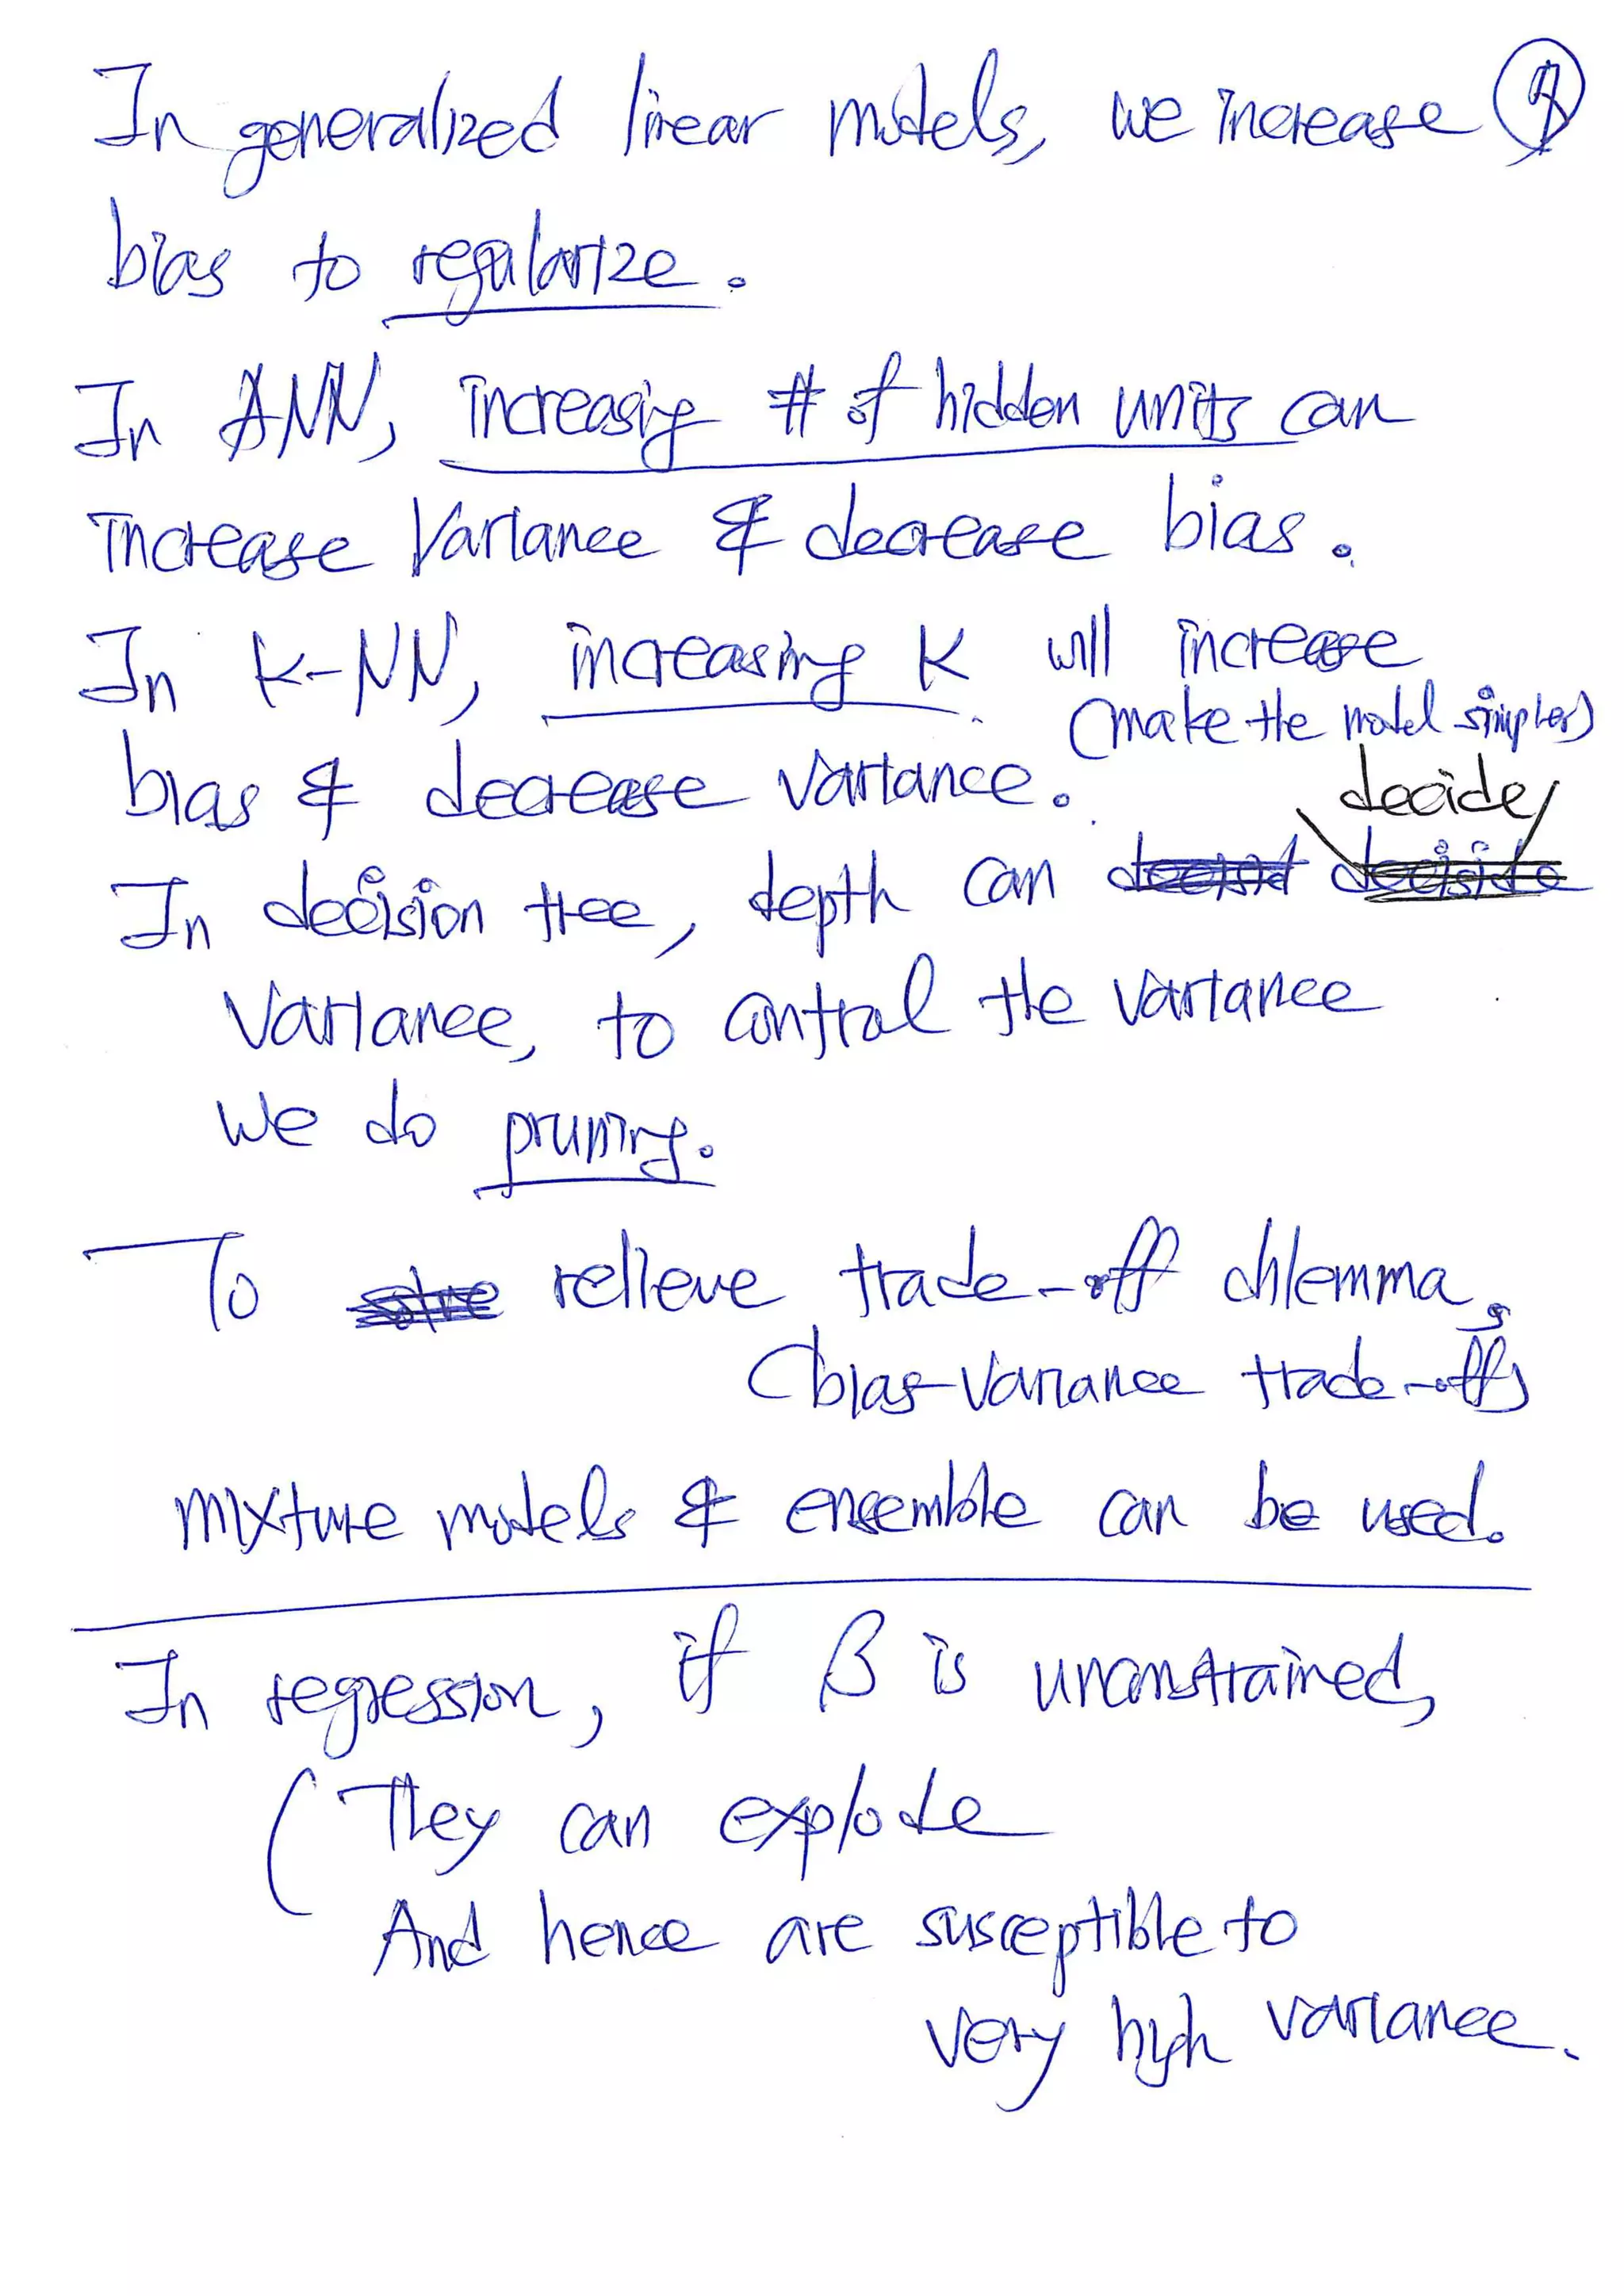 In generalized linear models, we increase
bias to regularize.
In ANN, increasing # of hidden units can
increase Variance & decrease bias.
In K-NN, increasing K will increase
(make the model simpler)
bias & decrease variance.
decide
In decision tree, depth can
Variance, to control the variance
we do pruning.
To relieve trade-off dilemma,
(bias-Variance trade-off)
mixture models & ensemble can be used.
In regression, if β is unconstrained,
They can explode
And hence are susceptible to
very high variance.